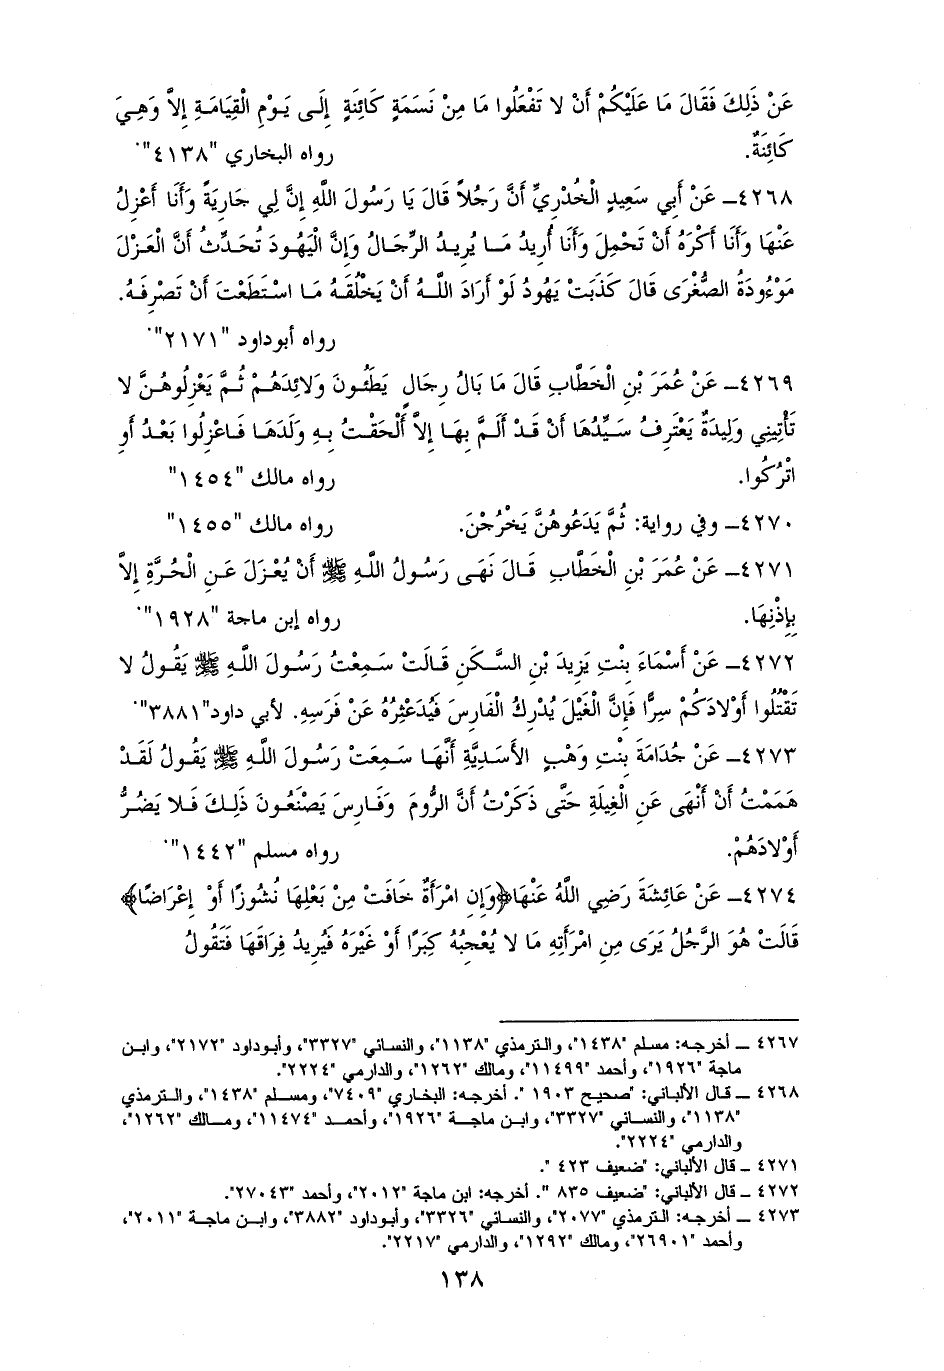 عَنْ ذَلِكَ فَقَالَ مَا عَلَيْكُمْ أَنْ لا تَفْعَلُوا مَا مِنْ نَسَمَةٍ كَائِنَةٍ إِلَى يَوْمِ الْقِيَامَةِ إِلاَّ وَهِيَ
كَائِنَةٌ. رواه البخاري "٤١٣٨".
٤٢٦٨ـ عَنْ أَبِي سَعِيدٍ الْخُدْرِيِّ أَنَّ رَجُلاً قَالَ يَا رَسُولَ اللَّهِ إِنَّ لِي جَارِيَةً وَأَنَا أَعْزِلُ
عَنْهَا وَأَنَا أَكْرَهُ أَنْ تَحْمِلَ وَأَنَا أُرِيدُ مَا يُرِيدُ الرِّجَالُ وَإِنَّ الْيَهُودَ تُحَدِّثُ أَنَّ الْعَزْلَ
مَوْءُودَةُ الصُّغْرَى قَالَ كَذَبَتْ يَهُودُ لَوْ أَرَادَ اللَّهُ أَنْ يَخْلُقَهُ مَا اسْتَطَعْتَ أَنْ تَصْرِفَهُ.
رواه أبوداود "٢١٧١".
٤٢٦٩ـ عَنْ عُمَرَ بْنِ الْخَطَّابِ قَالَ مَا بَالُ رِجَالٍ يَطَئُونَ وَلائِدَهُمْ ثُمَّ يَعْزِلُوهُنَّ لا
تَأْتِينِي وَلِيدَةٌ يَعْتَرِفُ سَيِّدُهَا أَنْ قَدْ أَلَمَّ بِهَا إِلاَّ أَلْحَقْتُ بِهِ وَلَدَهَا فَاعْزِلُوا بَعْدُ أَوِ
اتْرُكُوا. رواه مالك "١٤٥٤"
٤٢٧٠ـ وفي رواية: ثُمَّ يَدَعُوهُنَّ يَخْرُجْنَ. رواه مالك "١٤٥٥"
٤٢٧١ـ عَنْ عُمَرَ بْنِ الْخَطَّابِ قَالَ نَهَى رَسُولُ اللَّهِ ﷺ أَنْ يُعْزَلَ عَنِ الْحُرَّةِ إِلاَّ
بِإِذْنِهَا. رواه إبن ماجة "١٩٢٨".
٤٢٧٢ـ عَنْ أَسْمَاءَ بِنْتِ يَزِيدَ بْنِ السَّكَنِ قَالَتْ سَمِعْتُ رَسُولَ اللَّهِ ﷺ يَقُولُ لا
تَقْتُلُوا أَوْلادَكُمْ سِرًّا فَإِنَّ الْغَيْلَ يُدْرِكُ الْفَارِسَ فَيُدَعْثِرُهُ عَنْ فَرَسِهِ. لأبي داود"٣٨٨١".
٤٢٧٣ـ عَنْ جُدَامَةَ بِنْتِ وَهْبٍ الأَسَدِيَّةِ أَنَّهَا سَمِعَتْ رَسُولَ اللَّهِ ﷺ يَقُولُ لَقَدْ
هَمَمْتُ أَنْ أَنْهَى عَنِ الْغِيلَةِ حَتَّى ذَكَرْتُ أَنَّ الرُّومَ وَفَارِسَ يَصْنَعُونَ ذَلِكَ فَلا يَضُرُّ
أَوْلادَهُمْ. رواه مسلم "١٤٤٢".
٤٢٧٤ـ عَنْ عَائِشَةَ رَضِي اللَّهُ عَنْهَا﴿وَإِنِ امْرَأَةٌ خَافَتْ مِنْ بَعْلِهَا نُشُوزًا أَوْ إِعْرَاضًا﴾
قَالَتْ هُوَ الرَّجُلُ يَرَى مِنِ امْرَأَتِهِ مَا لا يُعْجِبُهُ كِبَرًا أَوْ غَيْرَهُ فَيُرِيدُ فِرَاقَهَا فَتَقُولُ
٤٢٦٧ ـ أخرجه: مسلم "١٤٣٨"، والترمذي "١١٣٨"، والنسائي "٣٣٢٧"، وأبوداود "٢١٧٢"، وابن
ماجة "١٩٢٦"، وأحمد "١١٤٩٩"، ومالك "١٢٦٢"، والدارمي "٢٢٢٤".
٤٢٦٨ ـ قال الألباني: "صحيح ١٩٠٣ ". أخرجه: البخاري "٧٤٠٩"، ومسلم "١٤٣٨"، والترمذي
"١١٣٨"، والنسائي "٣٣٢٧"، وابن ماجة "١٩٢٦"، وأحمد "١١٤٧٤"، ومالك "١٢٦٢"،
والدارمي "٢٢٢٤".
٤٢٧١ ـ قال الألباني: "ضعيف ٤٢٣ ".
٤٢٧٢ ـ قال الألباني: "ضعيف ٨٣٥ ". أخرجه: ابن ماجة "٢٠١٢"، وأحمد "٢٧٠٤٣".
٤٢٧٣ ـ أخرجه: الترمذي "٢٠٧٧"، والنسائي "٣٣٢٦"، وأبوداود "٣٨٨٢"، وابن ماجة "٢٠١١"،
وأحمد "٢٦٩٠١"، ومالك "١٢٩٢"، والدارمي "٢٢١٧".
١٣٨